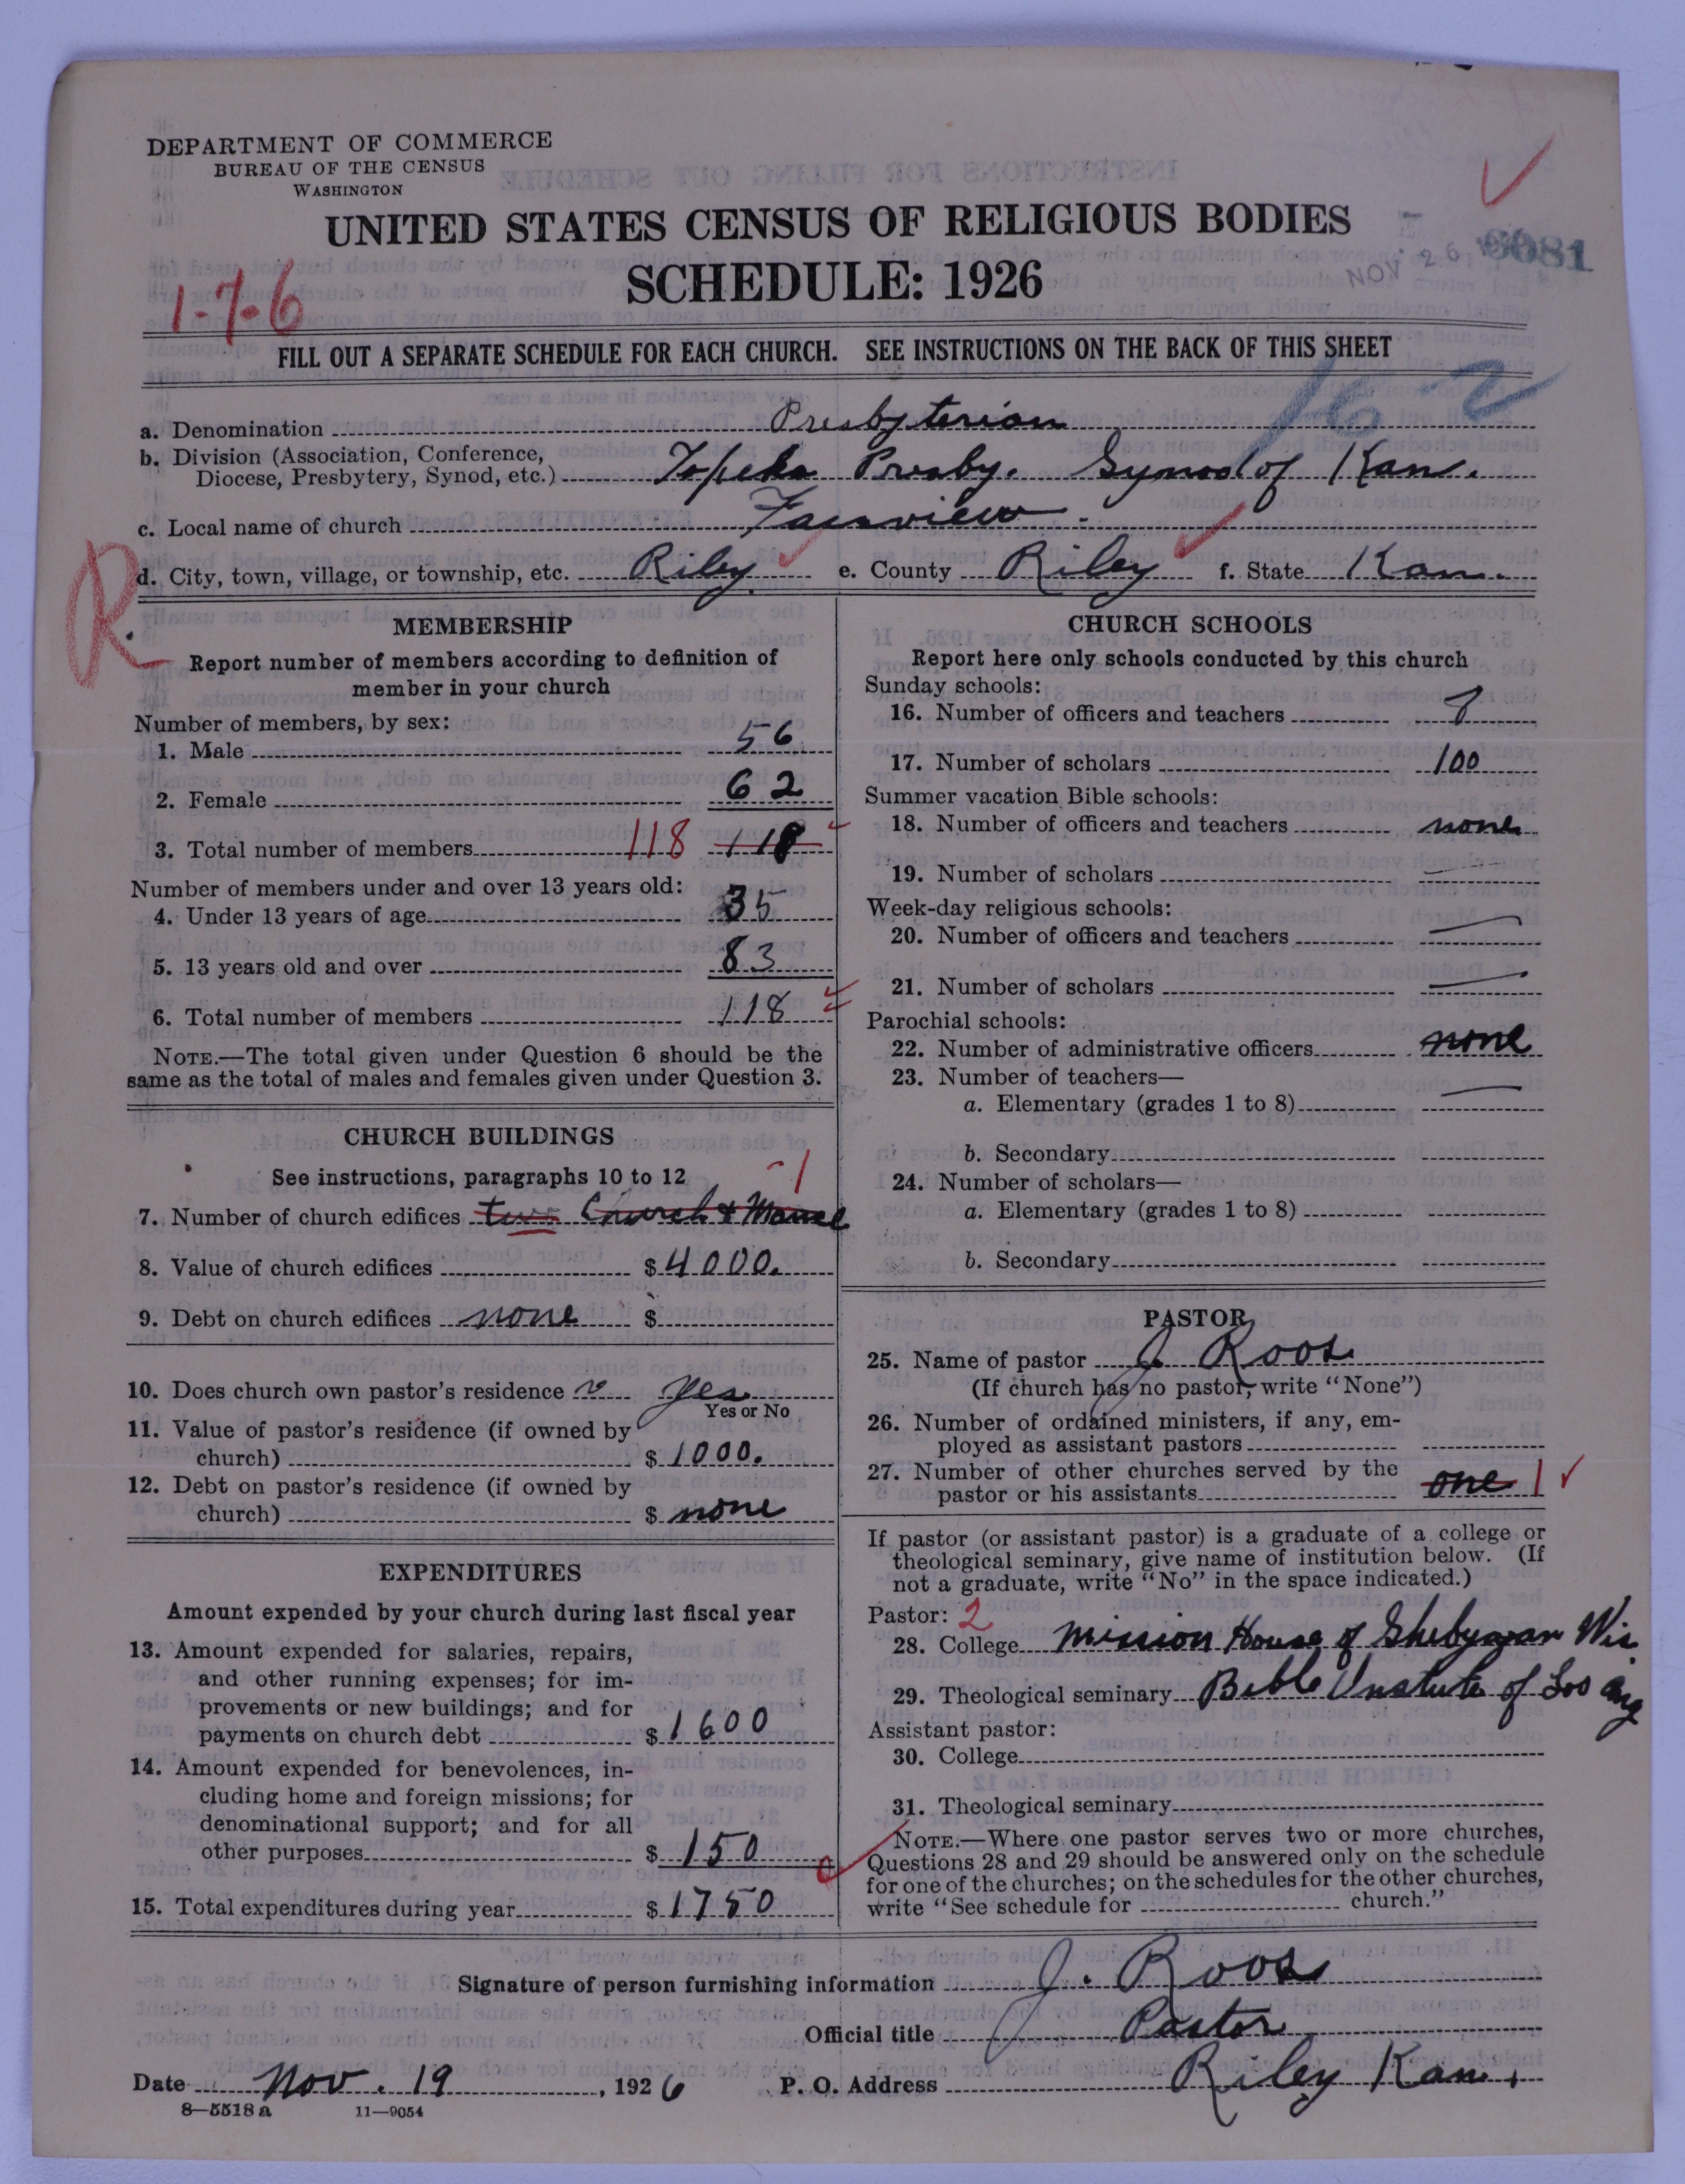 DEPARTMENT OF COMMERCE
BUREAU OF THE CENSUS
WASHINGTON
UNITED STATES CENSUS OF RELIGIOUS BODIES
SCHEDULE: 1926
1-7-6
NOV 26
6081
FILL OUT A SEPARATE SCHEDULE FOR EACH CHURCH. SEE INSTRUCTIONS ON THE BACK OF THIS SHEET
16 2
a. Denomination Presbyterian
b. Division (Association, Conference, Diocese, Presbytery, Synod, etc.) Topeka Presby. Synod of Kan.
c. Local name of church Fairview.
R.
d. City, town, village, or township, etc. Riley e. County Riley f. State Kan.
MEMBERSHIP
Report number of members according to definition of
member in your church
Number of members, by sex:
1. Male 56
2. Female 62
3. Total number of members 118 118
Number of members under and over 13 years old:
4. Under 13 years of age 35
5. 13 years old and over 83
6. Total number of members 118
NOTE.—The total given under Question 6 should be the
same as the total of males and females given under Question 3.
CHURCH BUILDINGS
See instructions, paragraphs 10 to 12
1
7. Number of church edifices two Church & Manse
8. Value of church edifices $ 4000.
9. Debt on church edifices none $
10. Does church own pastor's residence yes
Yes or No
11. Value of pastor's residence (if owned by
church) $ 1000.
12. Debt on pastor's residence (if owned by
church) $ none
EXPENDITURES
Amount expended by your church during last fiscal year
13. Amount expended for salaries, repairs,
and other running expenses; for im-
provements or new buildings; and for
payments on church debt $ 1600
14. Amount expended for benevolences, in-
cluding home and foreign missions; for
denominational support; and for all
other purposes $ 150
15. Total expenditures during year $ 1750
CHURCH SCHOOLS
Report here only schools conducted by this church
Sunday schools:
16. Number of officers and teachers 8
17. Number of scholars 100
Summer vacation Bible schools:
18. Number of officers and teachers none
19. Number of scholars —
Week-day religious schools:
20. Number of officers and teachers —
21. Number of scholars —
Parochial schools:
22. Number of administrative officers none
23. Number of teachers—
a. Elementary (grades 1 to 8) —
b. Secondary
24. Number of scholars—
a. Elementary (grades 1 to 8)
b. Secondary
PASTOR
25. Name of pastor J. Roos
(If church has no pastor, write "None")
26. Number of ordained ministers, if any, em-
ployed as assistant pastors
27. Number of other churches served by the
pastor or his assistants one 1
If pastor (or assistant pastor) is a graduate of a college or
theological seminary, give name of institution below. (If
not a graduate, write "No" in the space indicated.)
Pastor: 2
28. College Mission House of Shebygan Wis.
29. Theological seminary Bible Instute of Los Ang
Assistant pastor:
30. College
31. Theological seminary
NOTE.—Where one pastor serves two or more churches,
Questions 28 and 29 should be answered only on the schedule
for one of the churches; on the schedules for the other churches,
write "See schedule for church."
Signature of person furnishing information J. Roos
Official title Pastor
Date Nov. 19, 1926 P. O. Address Riley Kan.
8—5518 a 11—9054